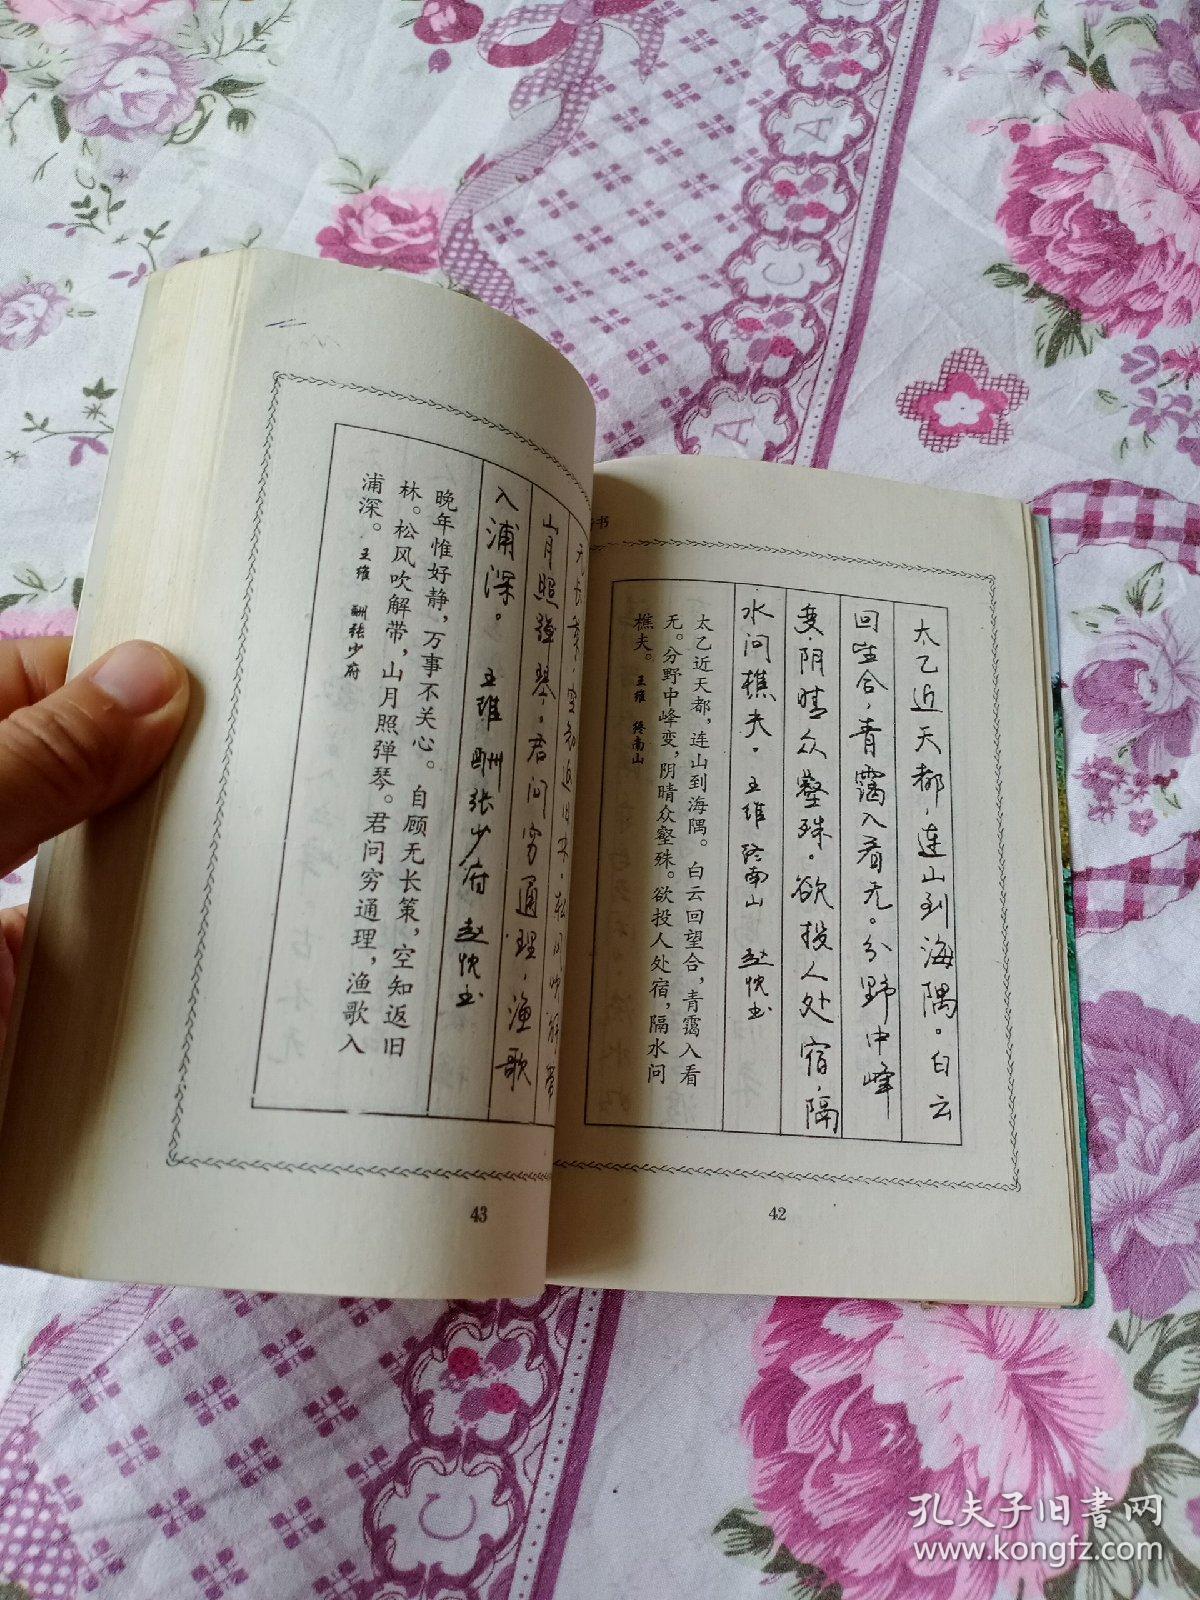 书
太乙近天都，连山到海隅。白云
回望合，青霭入看无。分野中峰
变，阴晴众壑殊。欲投人处宿，隔
水问樵夫。 王维 终南山 赵忱书
太乙近天都，连山到海隅。白云回望合，青霭入看
无。分野中峰变，阴晴众壑殊。欲投人处宿，隔水问
樵夫。 王维 终南山
42
无长策，空知返旧林。松风吹解带
山月照弹琴。君问穷通理，渔歌
入浦深。 王维 酬张少府 赵忱书
晚年惟好静，万事不关心。自顾无长策，空知返旧
林。松风吹解带，山月照弹琴。君问穷通理，渔歌入
浦深。 王维 酬张少府
43
孔夫子旧书网
www.kongfz.com